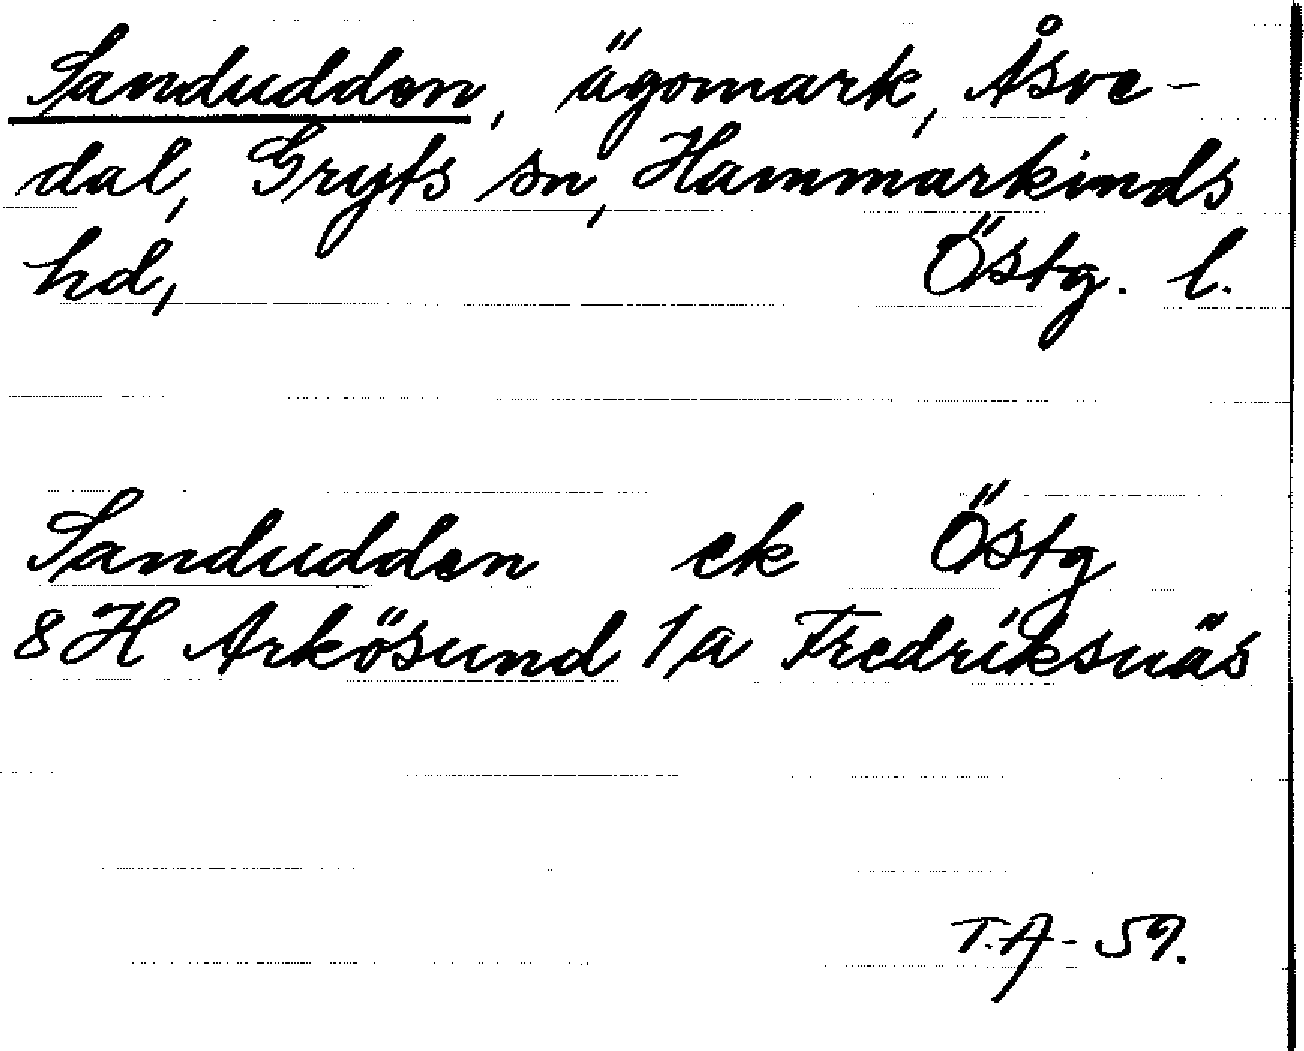 Sandudden, ägomark, Åsve-
dal, Gryts sn, Hammarkinds
hd, Östg. l.
Sandudden ek Östg
8H Arkösund 1a Fredriksnäs
T.A-59.